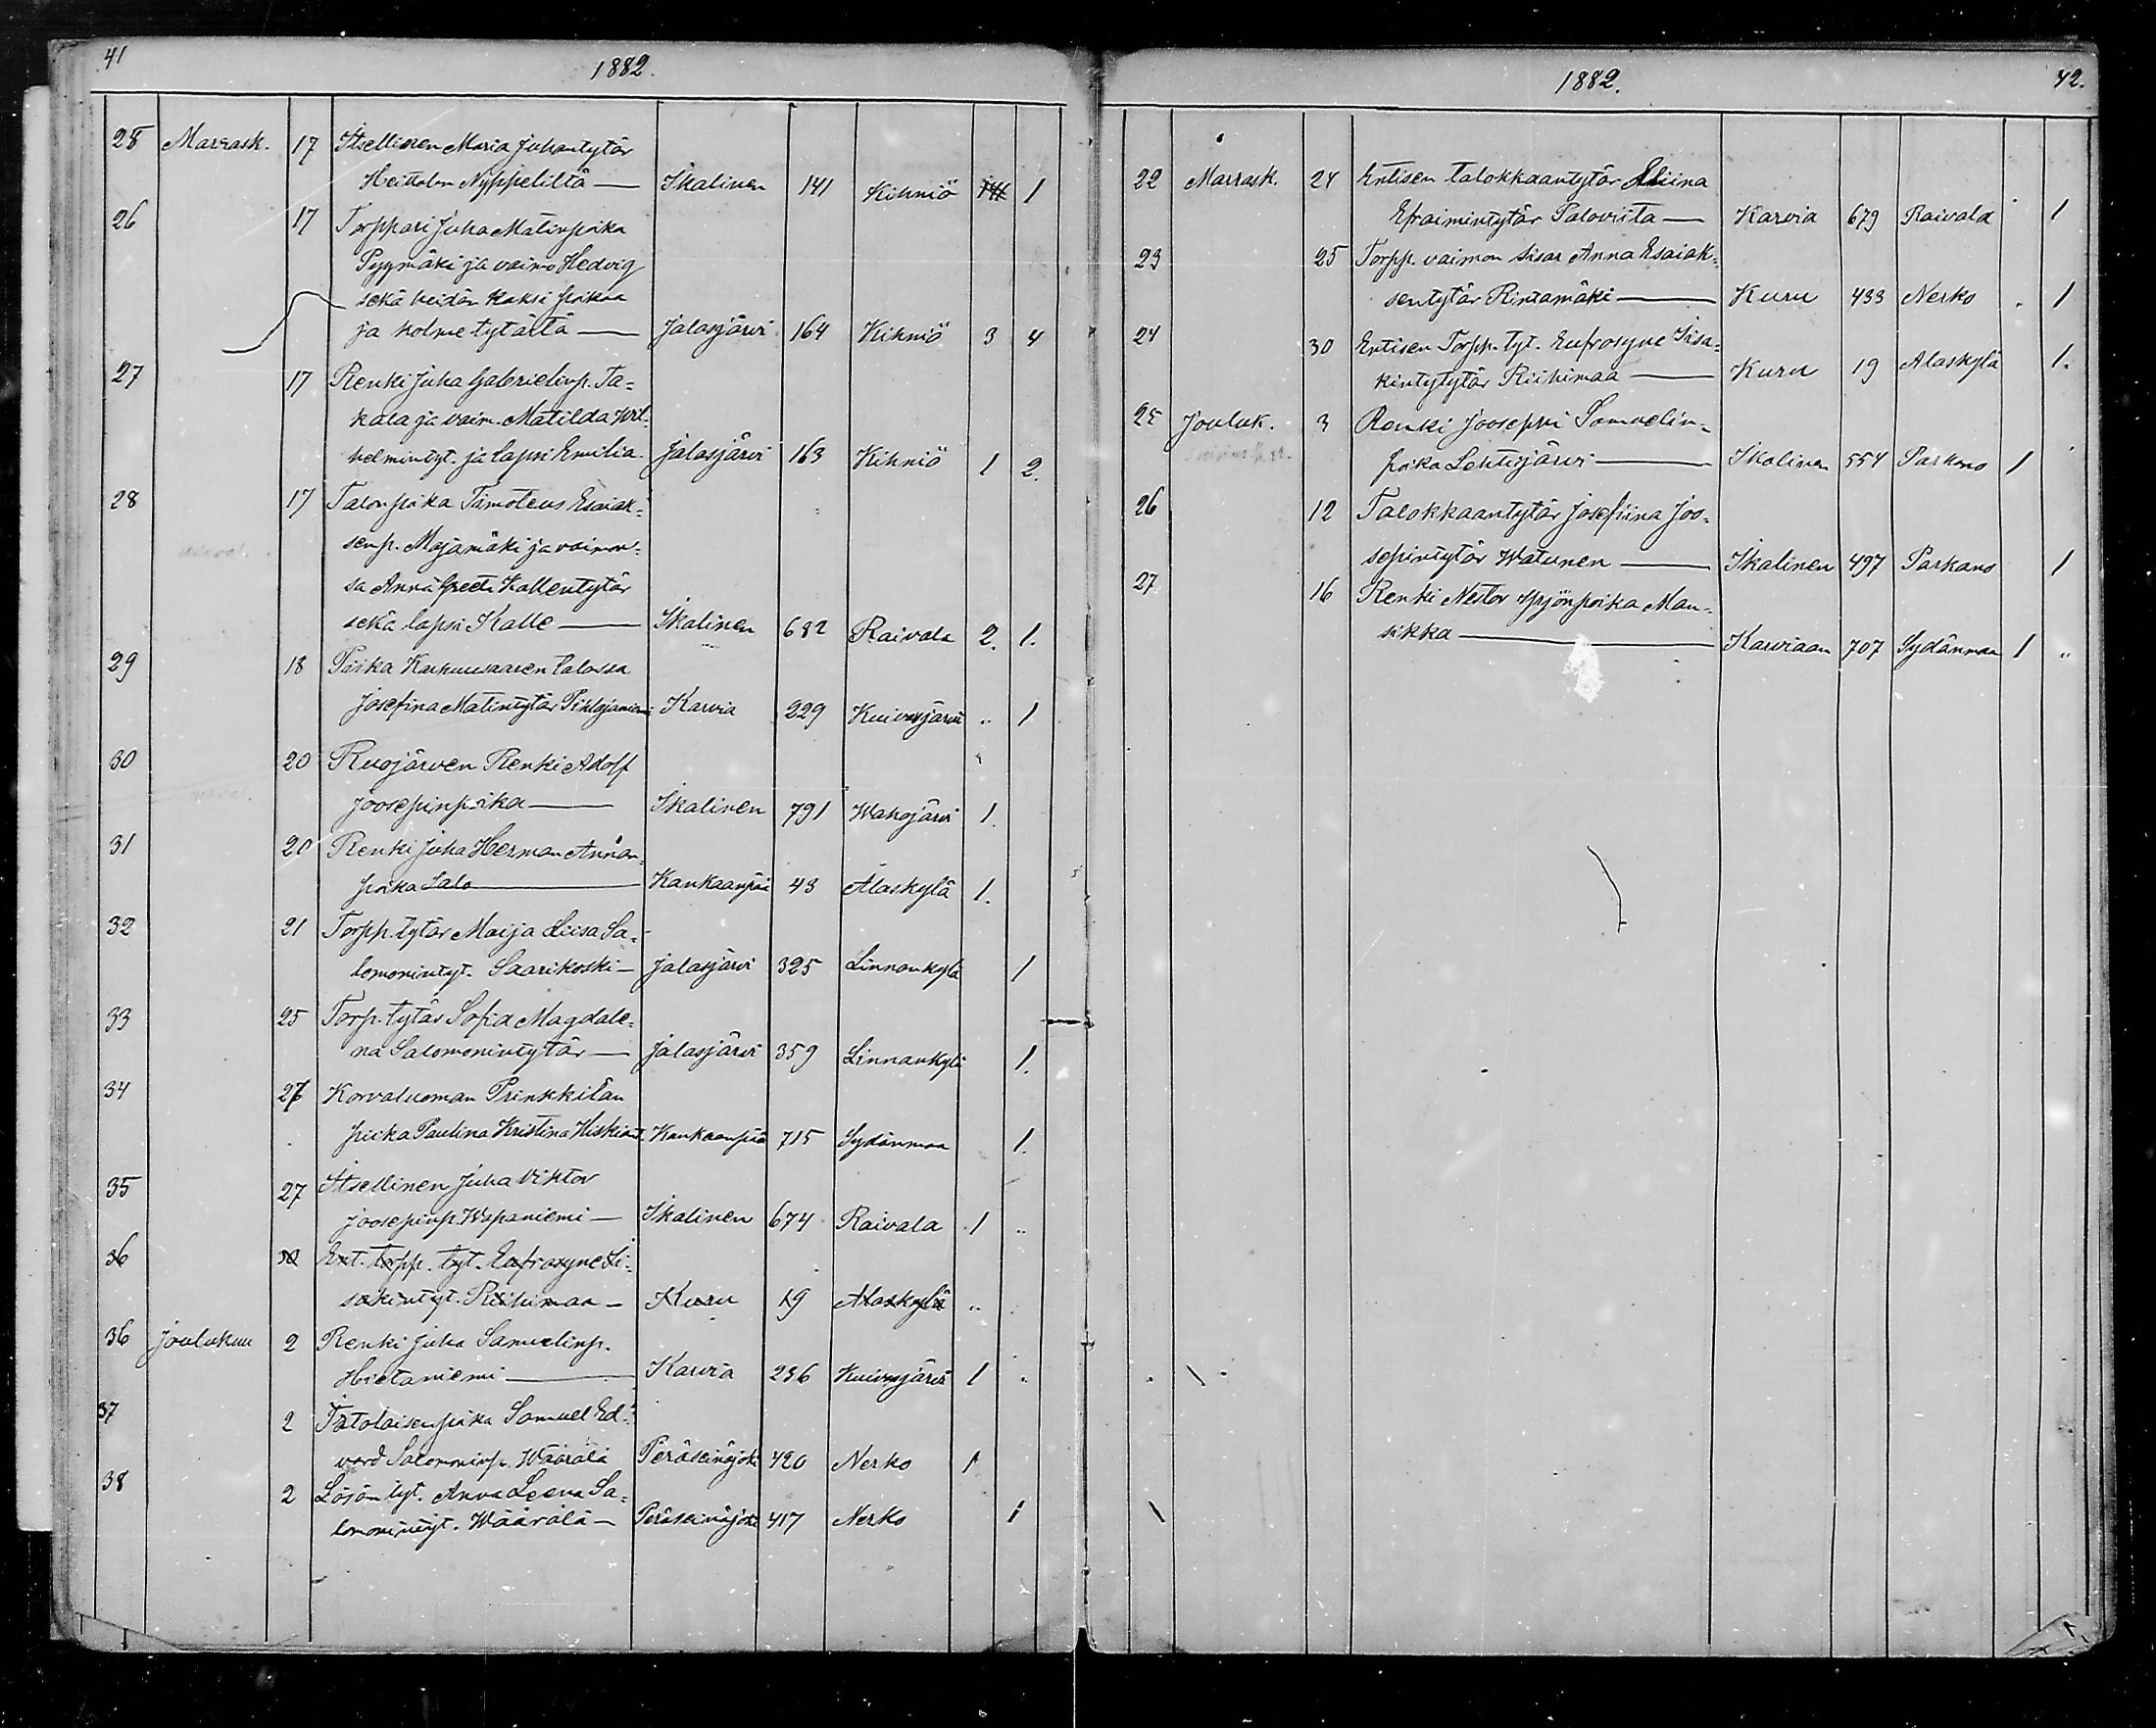 41
1882.
25 Marrask. 17 Itsellinen Maria Juhantytär
Heittolan Nyppeliltä — Ikalinen 141 Kihniö 1
26 17 Torppari Juha Matinpoika
Pyymäki ja vaimo Hedvig
sekä heidän kaksi poikaa
ja kolme tytärtä — Jalasjärvi 164 Kihniö 3 4
27 17 Renki Juha Gabrielinp. Ta=
kala ja vaim. Matilda Wil=
helmintyt. ja lapsi Emilia. Jalasjärvi 163 Kihniö 1 2.
28 17 Talonpoika Timoteus Esaiak=
senp. Majamäki ja vaimon=
sa Anna Greeta Kallentytär
sekä lapsi Kalle — Ikalinen 682 Raivala 2. 1.
29 18 Piika talossa
Josefina Matintytär Pihlajaniemi Karvia 229 Kuivasjärvi " 1
30 20 Ruojärven Renki Adolf
Joosepinpoika — Ikalinen 791 Wahojärvi 1.
31 20 Renki Juha Herman Annan=
poika Salo — Kankaanpää 43 Alaskylä 1.
32 21 Torpp. tytär Maija Liisa Sa=
lomonintyt. Saarikoski — Jalasjärvi 325 Linnankylä 1
33 25 Torp. tytär Sofia Magdale=
na Salomonintytär — Jalasjärvi 359 Linnankylä 1.
34 27 Korvaluoman Prinkkilän
piika Paulina Kristina Hiskiant. Kankaanpää 715 Sydänmaa 1.
35 27 Itsellinen Juha Viktor
Joosepinp. Wapaniemi — Ikalinen 674 Raivala 1 "
36 30 Ent. torpp. tyt. Eufrosyne Ii=
sakintyt. Riihimaa — Kuru 19 Alaskylä "
36 Joulukuu 2 Renki Juha Samuelinp.
Hietaniemi — Karvia 236 Kuivasjärvi 1 "
37 2 Itsellisenpoika Samuel Ed=
vard Salomoninp. Wäärälä Peräseinäjoki 420 Nerko 1
38 2 tyt. Anna Leena Sa=
lomonintyt. Wäärälä — Peräseinäjoki 417 Nerko 1
1882.
42.
22 Marrask. 24 Entisen talokkaantytär Eliina
Efraimintytär Palovista — Karvia 679 Raivala 1
23 25 Torpp. vaimon sisar Anna Esaiak=
sentytär Rintamäki — Kuru 433 Nerko " 1
24 30 Entisen Torpp. tyt. Eufrosyne Iisa=
kintytytär Riihimaa — Kuru 19 Alaskylä 1.
25 Jouluk. 3 Renki Jooseppi Samuelin=
poika Lehtisjärvi — Ikalinen 554 Parkano 1
26 12 Talokkaantytär Josefiina Joo=
sepintytär Watunen — Ikalinen 497 Parkano 1
27 16 Renki Nestor Yrjönpoika Man=
sikka — Karviaan 707 Sydänmaa 1 "